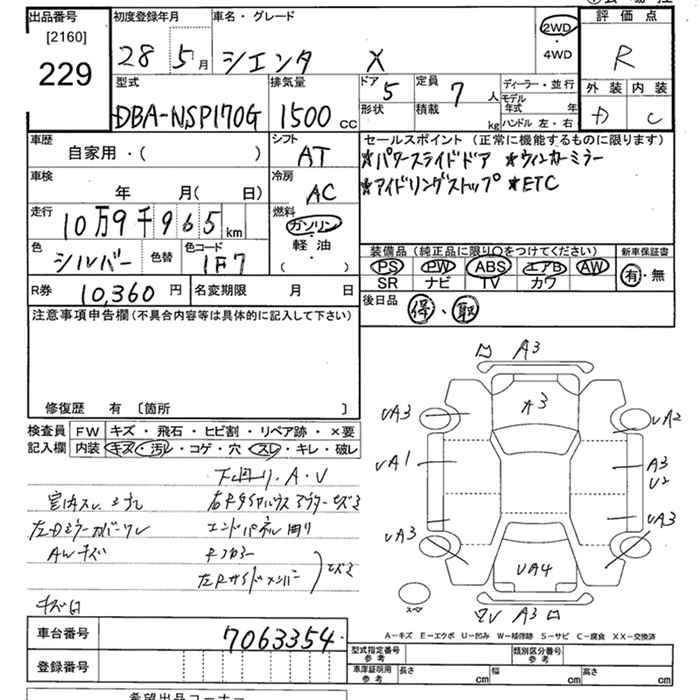 出品番号 初度登録年月 車名・グレード 評価点
[2160]
229 28 5月 シエンタ X 2WD・4WD R
外装 内装
D C
型式 排気量 ドア 定員 ディーラー・並行
DBA-NSP170G 1500 CC 5 7人 モデル年式 年
形状 積載 kg ハンドル 左・右
車歴 シフト セールスポイント (正常に機能するものに限ります)
自家用・( ) AT ★パワースライドドア ★ウィンカーミラー
★アイドリングストップ ★ETC
車検 冷房
年 月( 日) AC
走行 燃料
10万9千965km ガソリン・軽油・( )
色 シルバー 色替 色コード 1F7
装備品 (純正品に限り○をつけてください) 新車保証書
PS PW ABS エアB AW 有・無
SR ナビ TV カワ
R券 10,360円 名変期限 月 日
後日品 保・取
注意事項申告欄 (不具合内容等は具体的に記入して下さい)
修復歴 有 〔箇所 〕
検査員 FW キズ・飛石・ヒビ割・リペア跡・×要
記入欄 内装 キズ・汚レ・コゲ・穴・スレ・キレ・破レ
下回リ・A・V
AWキズ
A3
A3
UA3 UA2
UA1 A3
U2
UA3 UA3
UA4
A3
スペア
A-キズ E-エクボ U-凹み W-補修跡 S-サビ C-腐食 XX-交換済
車台番号 7063354
登録番号
型式指定番号 参考 類別区分番号 参考
車庫証明用 参考 長さ cm 幅 cm 高さ cm
希望出品コーナー